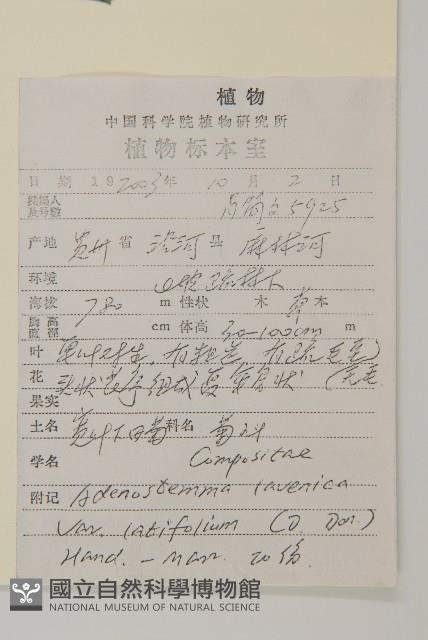 植物
中国科学院植物研究所
植物标本室
日期 19 2003年 10 月 2 日
采集人
及号数 5925
产地 贵州省 沿河县 麻林河
环境 山坡疏林下
海拔 780 m 性状 木 草本
胸高
直径 cm 体高 50-100cm m
叶 单叶对生,有粗齿,有疏毛
花 头状花序组成复伞房状
果实
土名 宽叶下田菊 科名 菊科
学名 Compositae
附记 Adenostemma lavenica
Var. latifolium (D Don.)
Hand. - Mazz. 20份.
國立自然科學博物館
NATIONAL MUSEUM OF NATURAL SCIENCE